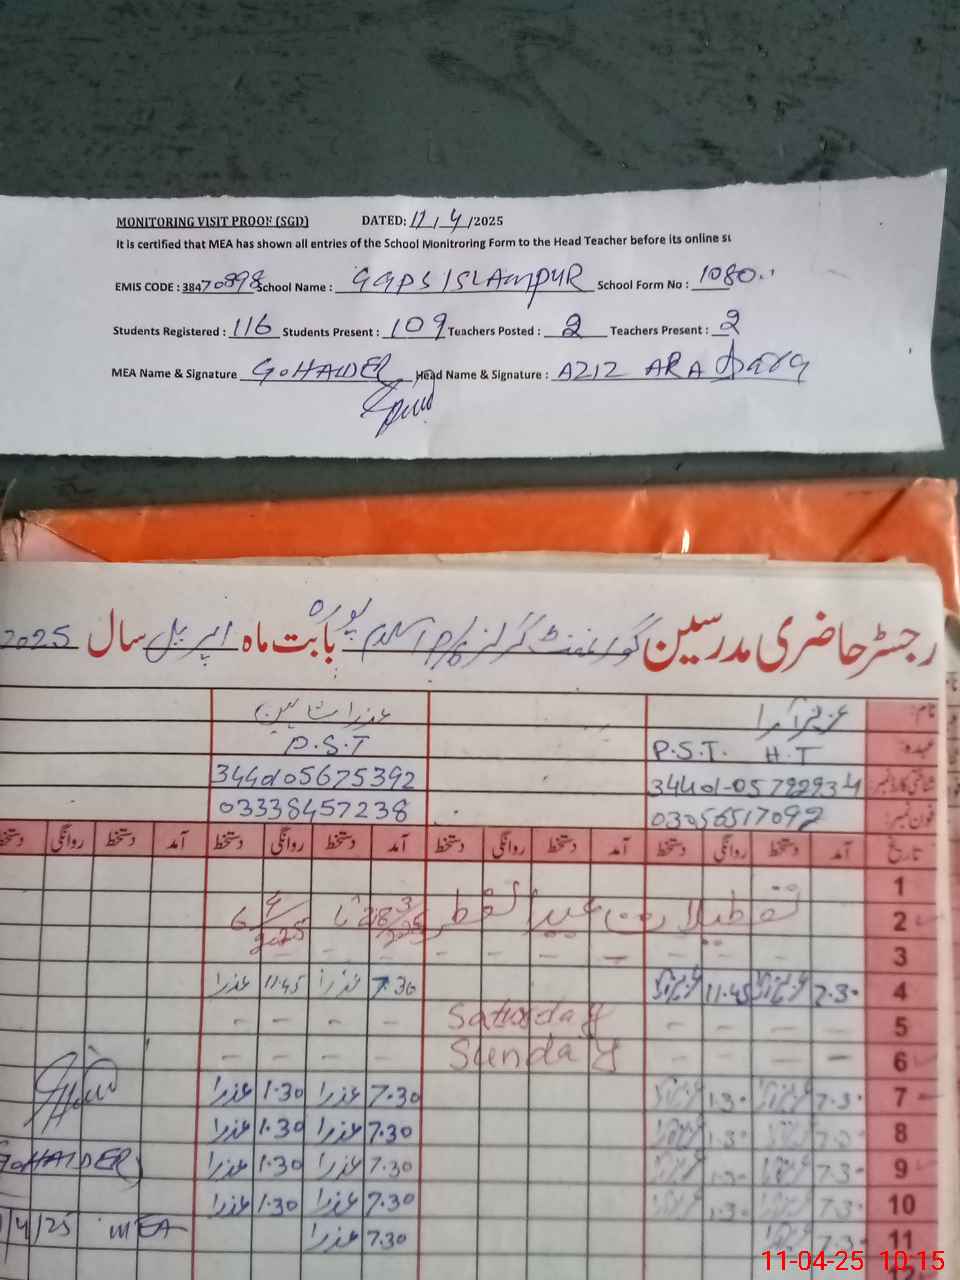 MONITORING VISIT PROOF (SGD) DATED: 11/4/2025
It is certified that MEA has shown all entries of the School Monitroring Form to the Head Teacher before its online
EMIS CODE : 38470898 School Name : GGPS ISLAMPUR School Form No : 1080
Students Registered : 116 Students Present : 109 Teachers Posted : 2 Teachers Present : 2
MEA Name & Signature G.HAIDER Head Name & Signature : AZIZ ARA
رجسٹر حاضری مدرسین گورنمنٹ گرلز پورہ بابت ماہ اپریل سال 2025
نام: عزیز آرا عذرا شاہین
عہدہ: P.S.T. H.T P.S.T
شناختی کارڈ نمبر 34401-05675392
فون نمبر: 03056517092 03338457238
تاریخ آمد دستخط روانگی دستخط آمد دستخط روانگی دستخط آمد دستخط روانگی دستخط آمد دستخط روانگی دستخط
1
2 تعطیلات عید الفطر 28/3/2025 تا 6/4/2025
3
4 7.30 11.45 7.30 عذرا 11.45 عذرا
5 Saturday
6 Sunday
7 7.30 1.30 7.30 عذرا 1.30 عذرا
8 7.30 1.30 7.30 عذرا 1.30 عذرا
9 7.30 1.30 7.30 عذرا 1.30 عذرا
G.HAIDER
10 7.30 1.30 7.30 عذرا 1.30 عذرا
11 7.30 7.30 عذرا
/4/25 MEA
12
11-04-25 10:15